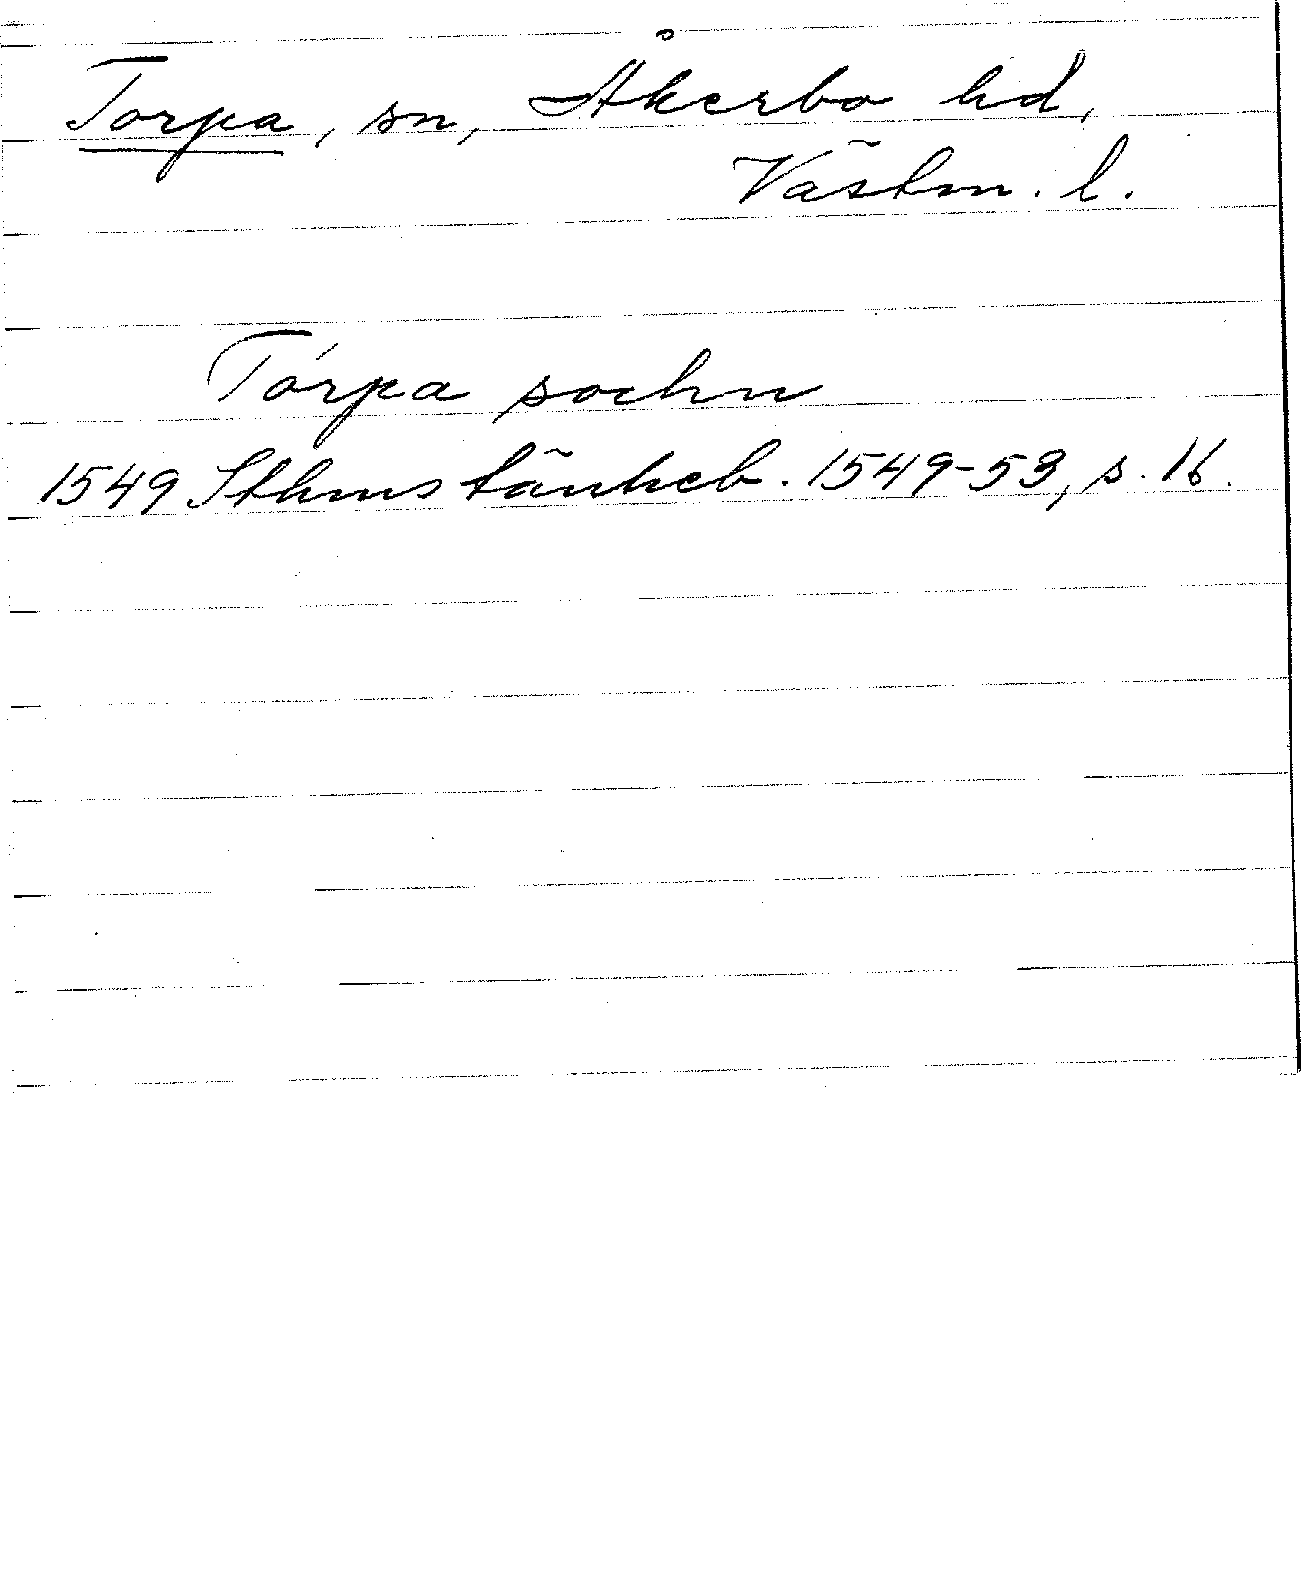 Torpa, sn, Åkerbo hd,
Västm. l.
Tórpa sochn
1549 Sthms tänkeb. 1549-53, s. 16.